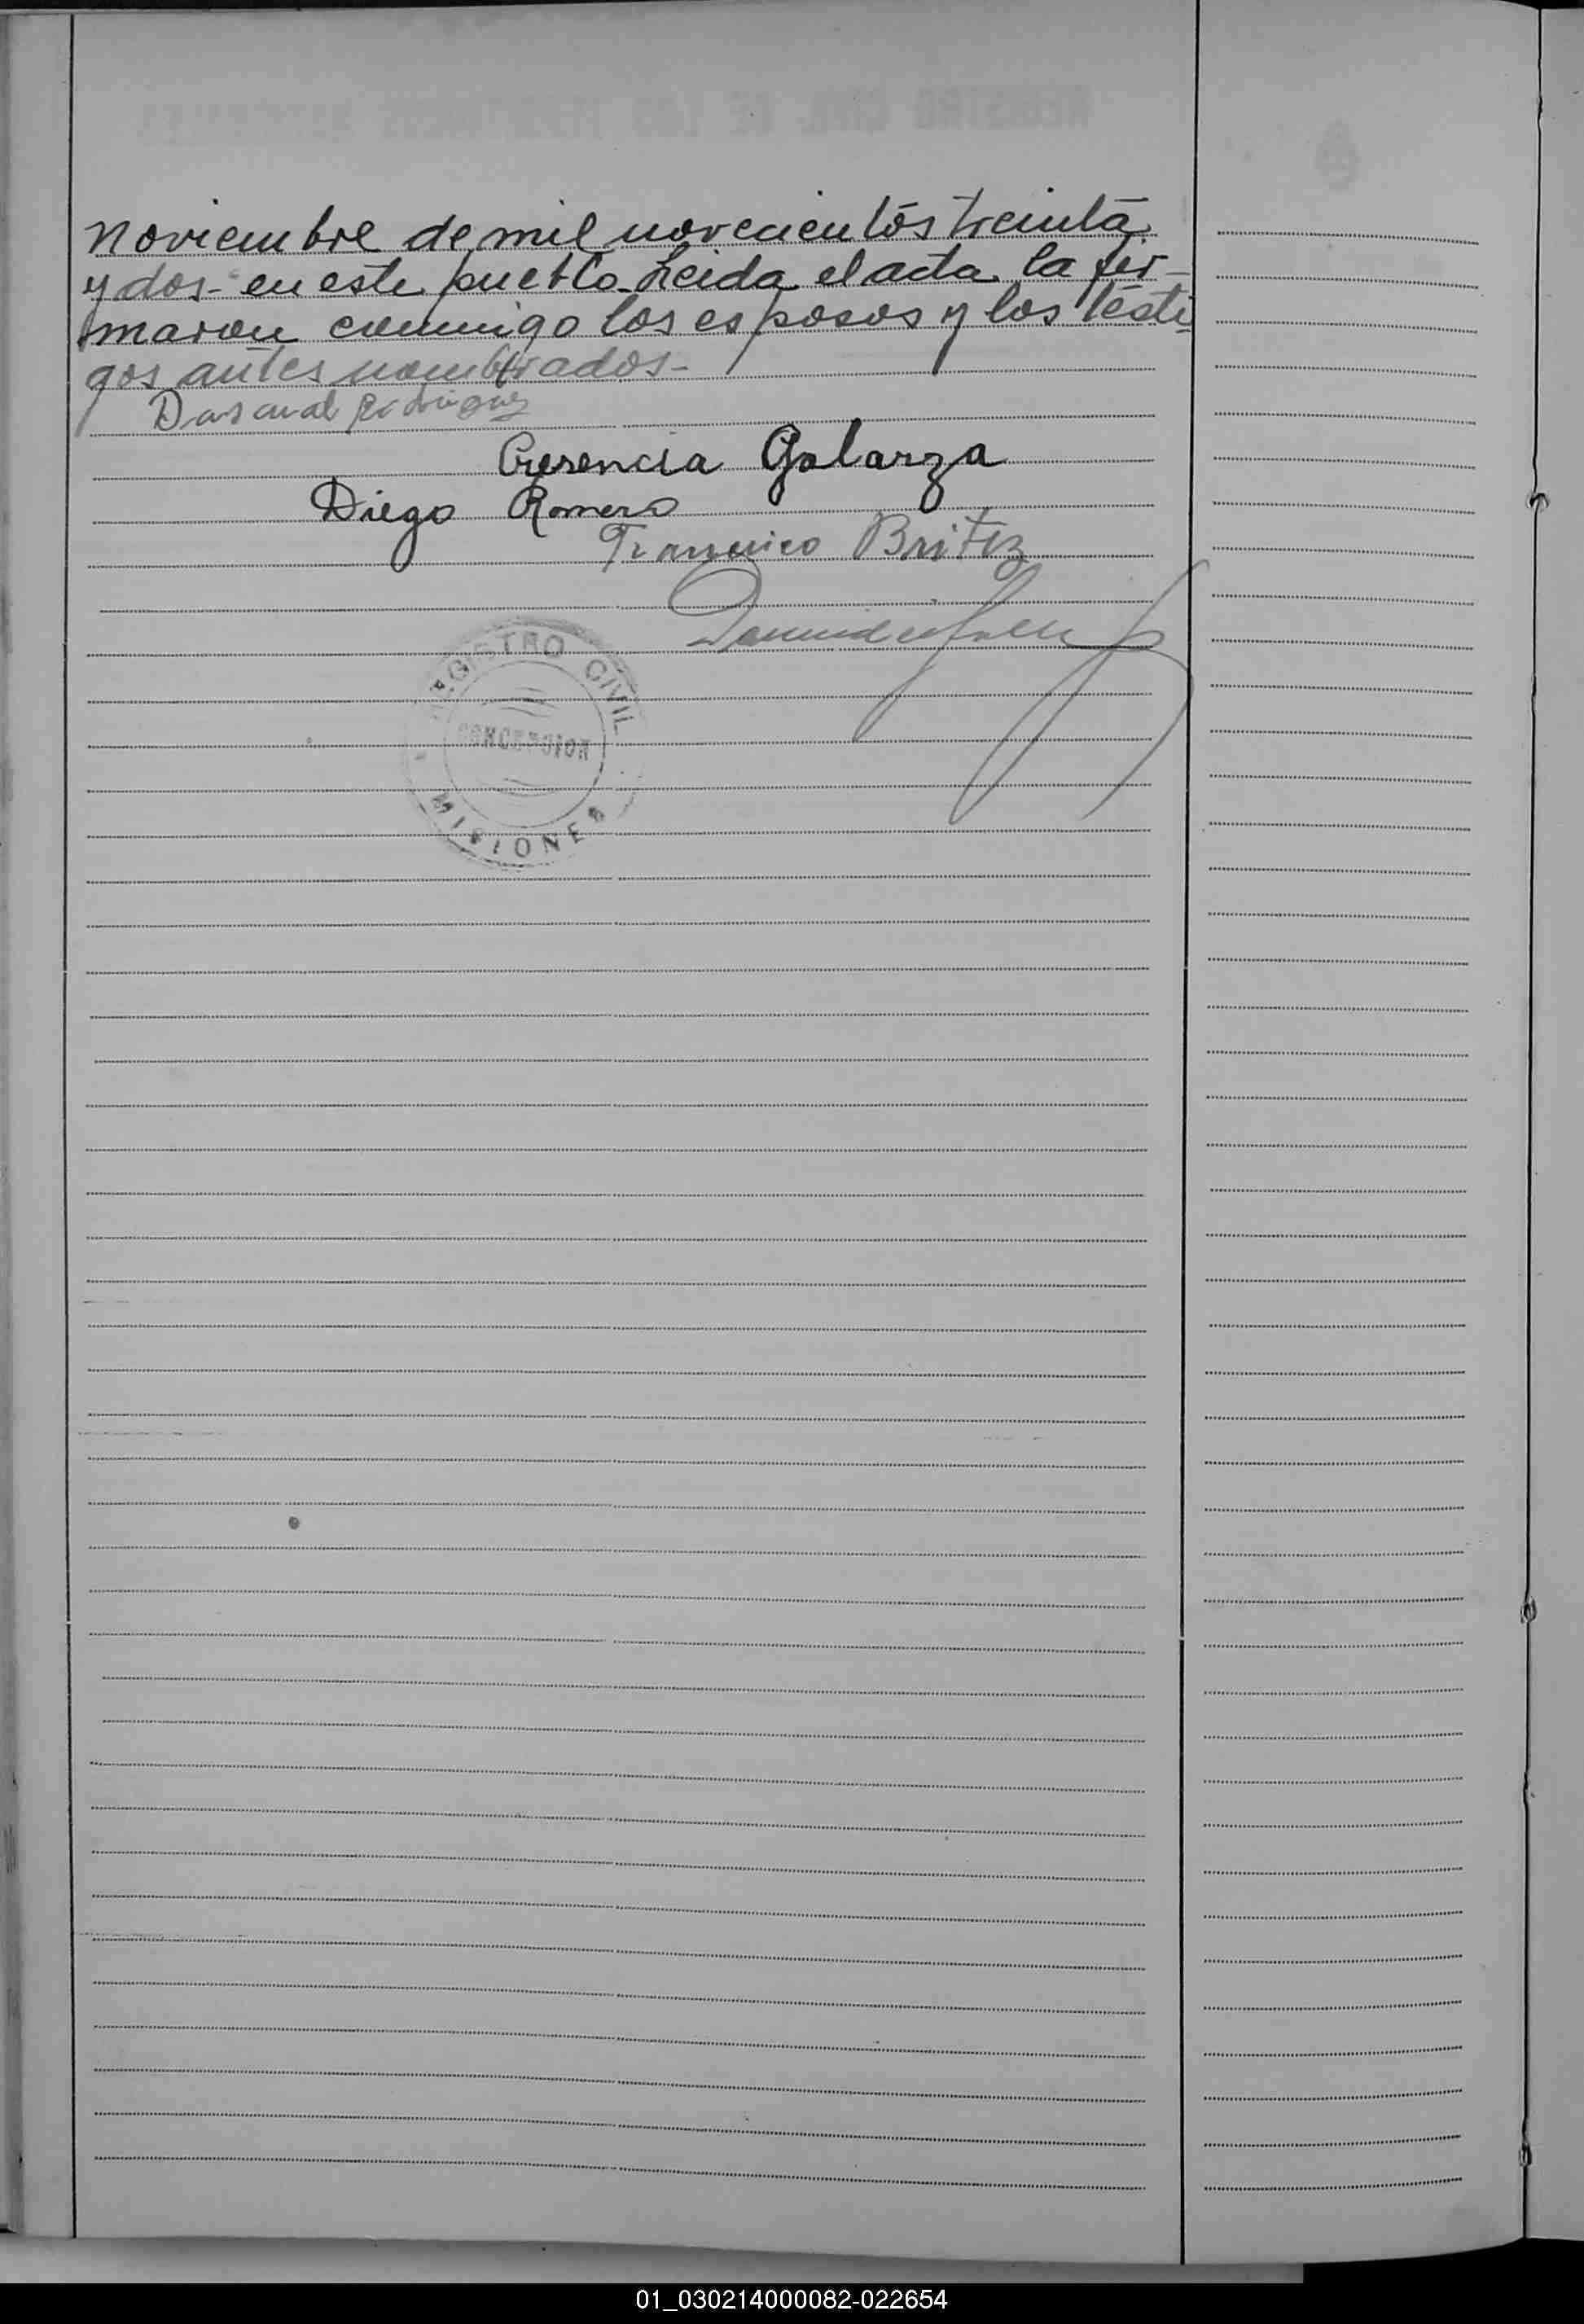 noviembre de mil novecientos treinta
y dos - en este pueblo. Leida el acta la fir-
maron conmigo los esposos y los testi-
gos antes nombrados -
Pascual Rodriguez
Cresencia Galarza
Diego Romero
Francisco Britez
REGISTRO CIVIL
CONCEPCION
MISIONES
01_030214000082-022654